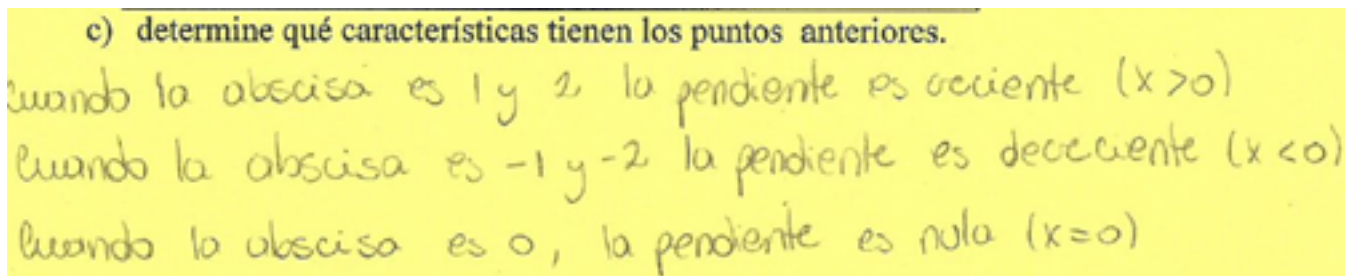 c) determine qué características tienen los puntos anteriores.
Cuando la abscisa es 1 y 2 la pendiente es creciente (x>0)
Cuando la abscisa es -1 y -2 la pendiente es dececiente (x<0)
Cuando la abscisa es 0, la pendiente es nula (x=0)